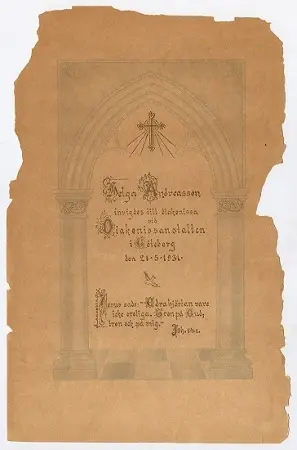 Helga Andreasson
invigdes till diakonissa
vid
Diakonissanstalten
i Göteborg
den 21-5-1931.
Jesus sade: - Edra hjärtan vare
icke oroliga. Tron på Gud,
tron ock på mig. -
Joh.